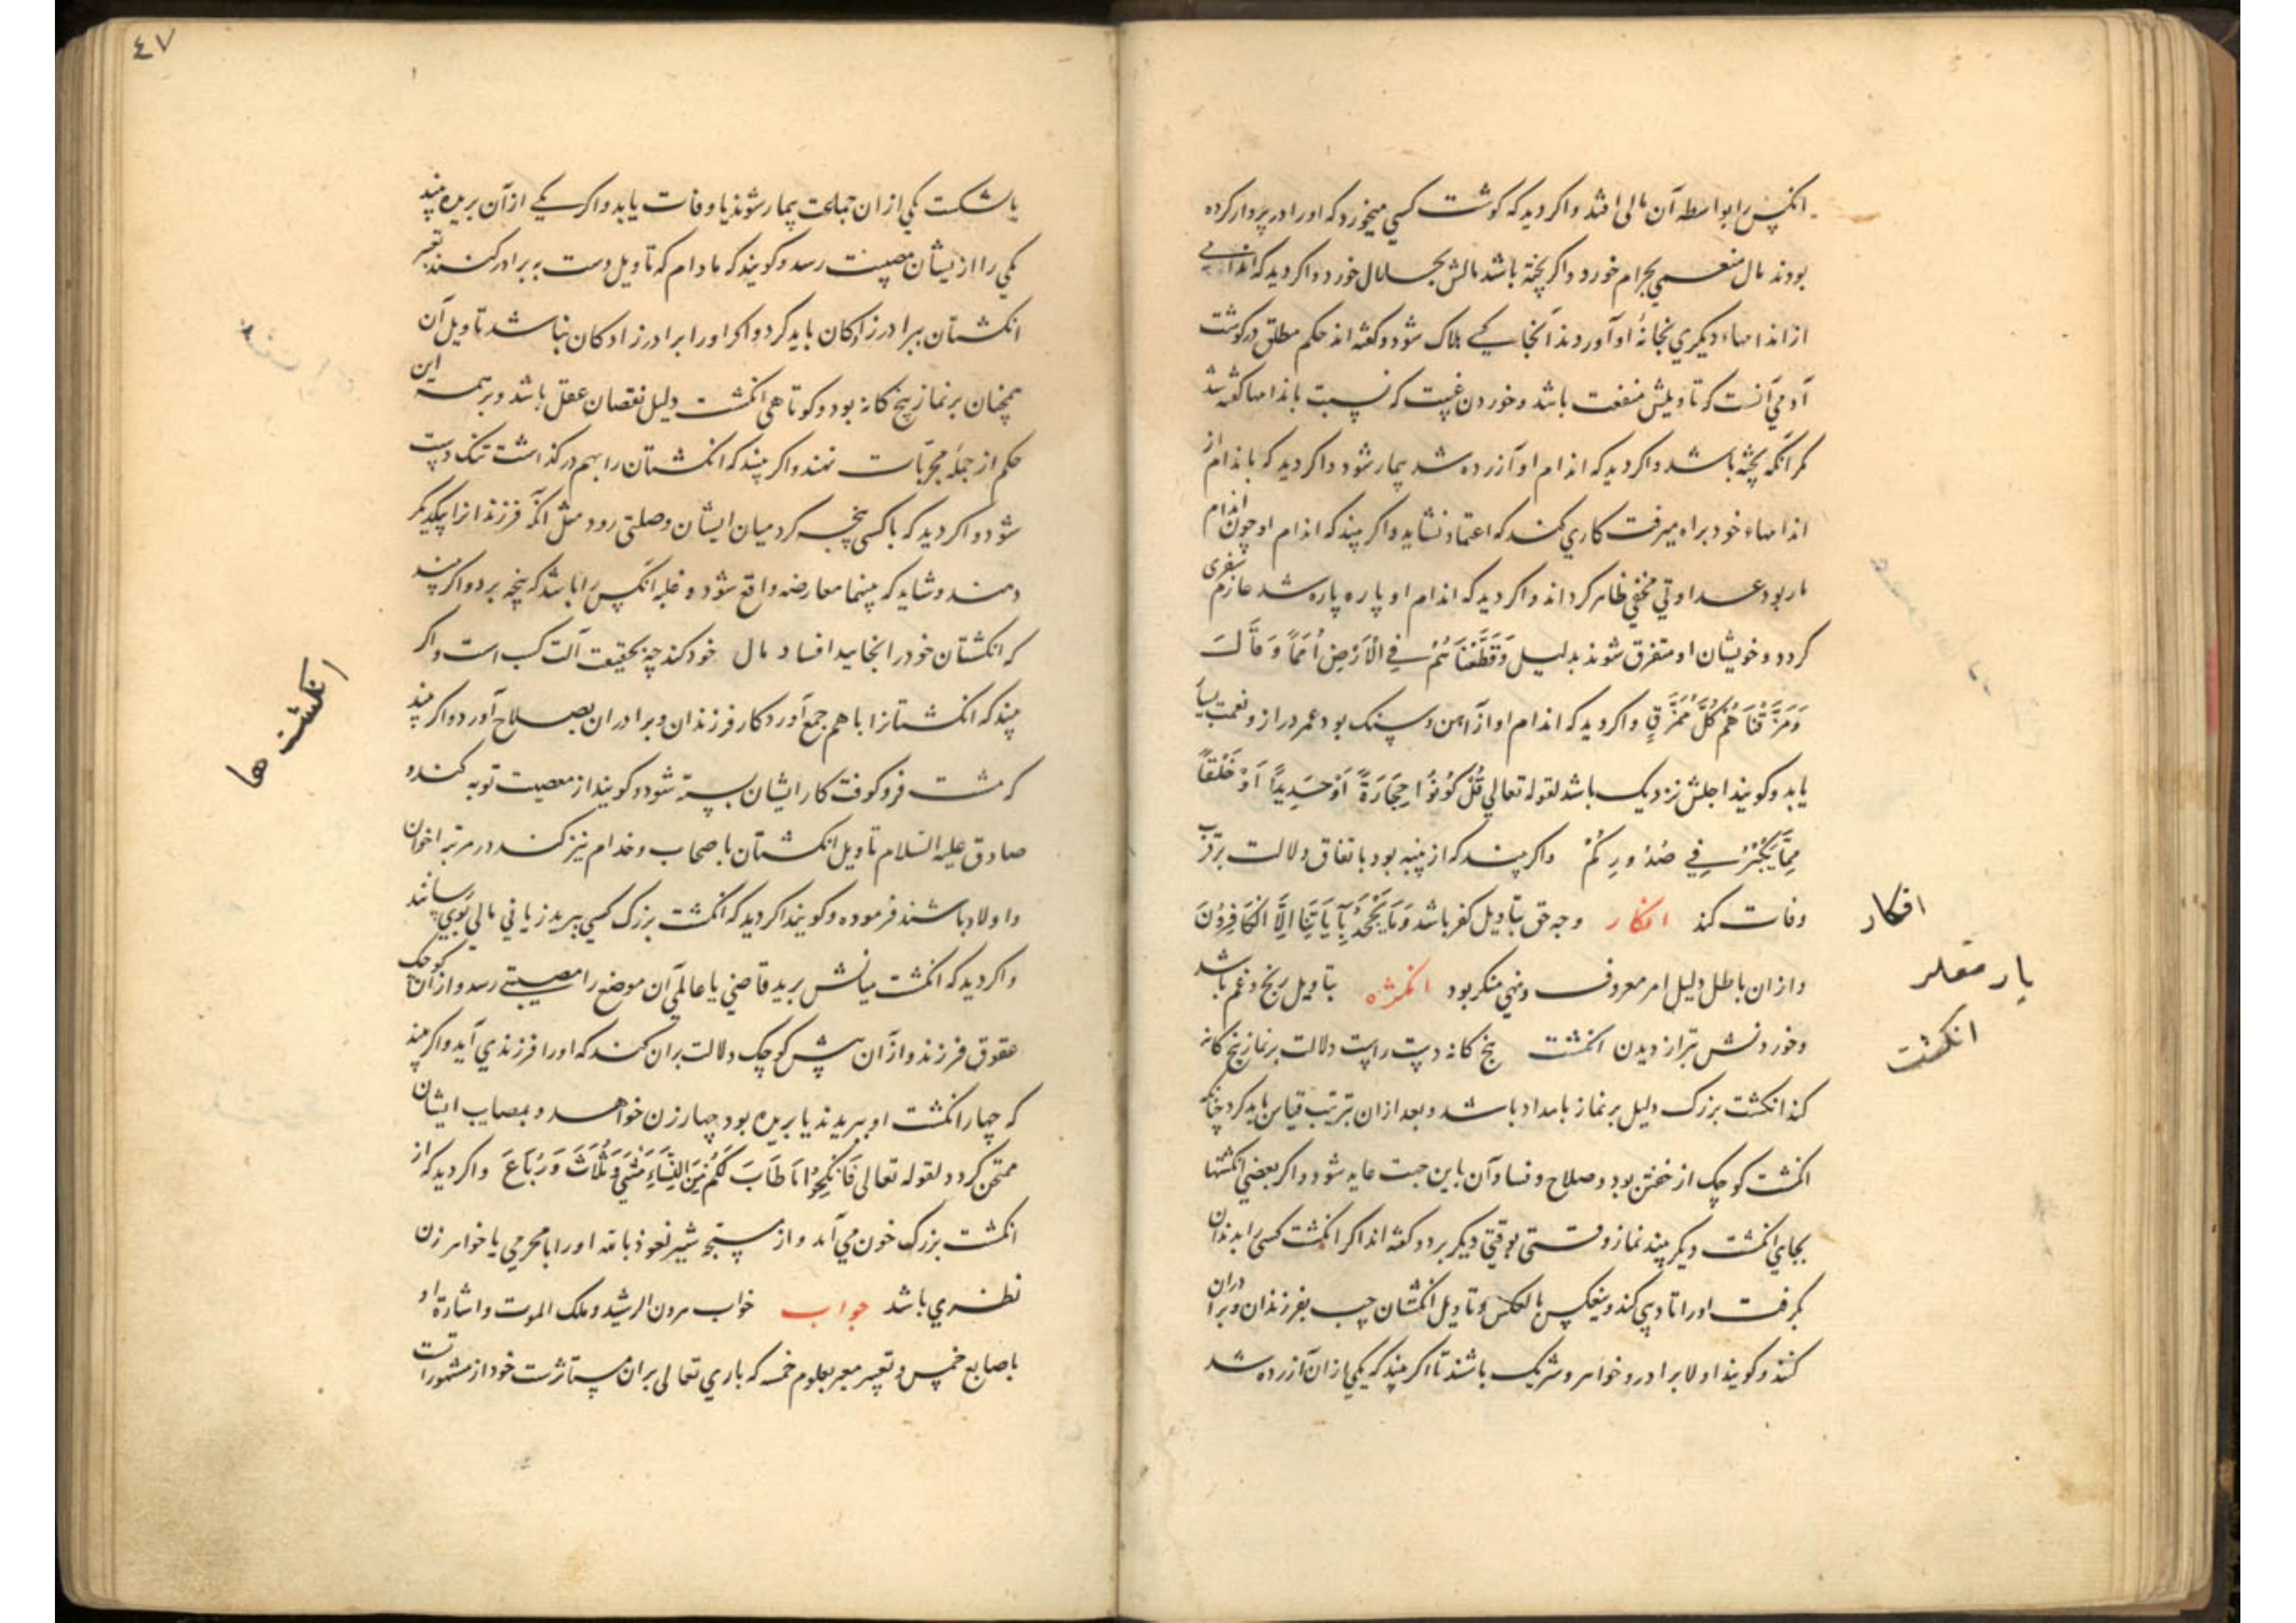 انکس را بواسطه آن مالی افتد واکر دید که کوشت کسی میخورد که اورا در پروار کرده
بودند مال منعمی بحرام خورد واکر پخته باشد مالش بحلال خورد واکر دید که اندامی
از اندامهاء دیکری بخانهٔ او آوردند آنجا یکی هلاک شود و کفته اند حکم مطلق در کوشت
آدمی آنست که تاویلش منفعت باشد و خوردن غیبت که نسبت باندامها کفته شد
مکر آنکه پخته باشد واکر دید که اندام او آزرده شد بیمار شود واکر دید که باندام از
اندامهاء خود براه میرفت کاری کند که اعتماد نشاید واکر بیند که اندام او چون اندام
مار بود عداوتی مخفی ظاهر کرداند واکر دید که اندام او پاره پاره شد عازم سفری
کردد و خویشان او متفرق شوند بدلیل وَقَطَّعْنَاهُمْ فِي الْأَرْضِ أُمَمًا وَقَالَ
وَمَزَّقْنَاهُمْ كُلَّ مُمَزَّقٍ واکر دید که اندام او از آهن و سنک بود عمر دراز و نعمت بسیار
یابد و کویند اجلش نزدیک باشد لقوله تعالی قُلْ كُونُوا حِجَارَةً أَوْ حَدِيدًا أَوْ خَلْقًا
مِمَّا يَكْبُرُ فِي صُدُورِكُمْ واکر بیند که از پنبه بود باتفاق دلالت بر قرب
وفات کند انکار وجه حق بتاویل کفر باشد وَمَا يَجْحَدُ بِآيَاتِنَا إِلَّا الْكَافِرُونَ
وازان باطل دلیل امر معروف و نهی منکر بود انکژه بتاویل رنج و غم باشد
وخوردنش بتر از دیدن انکشت پنج کانه دست راست دلالت بر نماز پنج کانه
کند انکشت بزرک دلیل بر نماز بامداد باشد و بعد ازان بترتیب قیاس باید کرد چنانکه
انکشت کوچک از خفتن بود و صلاح و فساد آن باین جهت عاید شود واکر بعضی انکشتها
بجای انکشت دیکر بیند نماز وقتی بوقتی دیکر برد و کفته اند اکر انکشت کسی را بدندان
بکرفت اورا تادیبی کند وینعکس بالعکس و تاویل انکشتان چپ بفرزندان و برادران
کنند و کویند اولا برادر و خواهر و شریک باشند تا اکر بیند که یکی ازان آزرده شد
افکار
انکشت
٤٧
یا شکست یکی ازان جماعت بیمار شوند یا وفات یابد واکر یکی از آن بریده بیند
یکی را از یشان مصیبت رسد و کویند که مادام که تاویل دست به برادر کنند تعبیر
انکشتان ببرادرزادکان باید کرد واکر اورا برادرزادکان نباشد تاویل آن
همچنان بر نماز پنج کانه بود و کوتاهی انکشت دلیل نقصان عقل باشد و بر همه این
حکم از جمله مجربات نهند واکر بیند که انکشتان را بهم در کذاشت تنک دست
شود واکر دید که با کسی پنجه کرد میان ایشان وصلتی رود مثل آنکه فرزندانرا بیکدیکر
دهند و شاید که بینهما معارضه واقع شود و غلبه انکس را باشد که پنجه برد واکر بیند
که انکشتان خود را بخایید افساد مال خود کند چه بحقیقت آلت کسب است واکر
بیند که انکشتانرا با هم جمع آورد کار فرزندان و برادران بصلاح آورد واکر بیند
که مشت فرو کوفت کار ایشان بسته شود و کویند از معصیت توبه کند و
صادق علیه السلام تاویل انکشتان باصحاب و خدام نیز کند در مرتبه اخوان
واولاد باشند فرموده و کویند اکر دید که انکشت بزرک کسی ببرید زیانی مالی بوی رساند
واکر دید که انکشت میانش برید قاضی یا عالمی آن موضع را مصیبتی رسد و از آن کوچک
عقوق فرزند و از آن پیش کوچک دلالت بران کند که اورا فرزندی آید واکر بیند
که چهار انکشت او ببریدند یا بریده بود چهار زن خواهد و بمصایب ایشان
ممتحن کردد لقوله تعالی فَانْكِحُوا مَا طَابَ لَكُمْ مِنَ النِّسَاءِ مَثْنَى وَثُلَاثَ وَرُبَاعَ واکر دید که از
انکشت بزرک خون می آمد و از سبابه شیر نعوذ بالله اورا با محرمی یا خواهر زن
نظری باشد جواب خواب هرون الرشید و ملک الموت و اشارة او
باصابع خمس و تعبیر معبر بعلوم خمسه که باری تعالی بران مستاثرست خود از مشهورات
انکشت ها